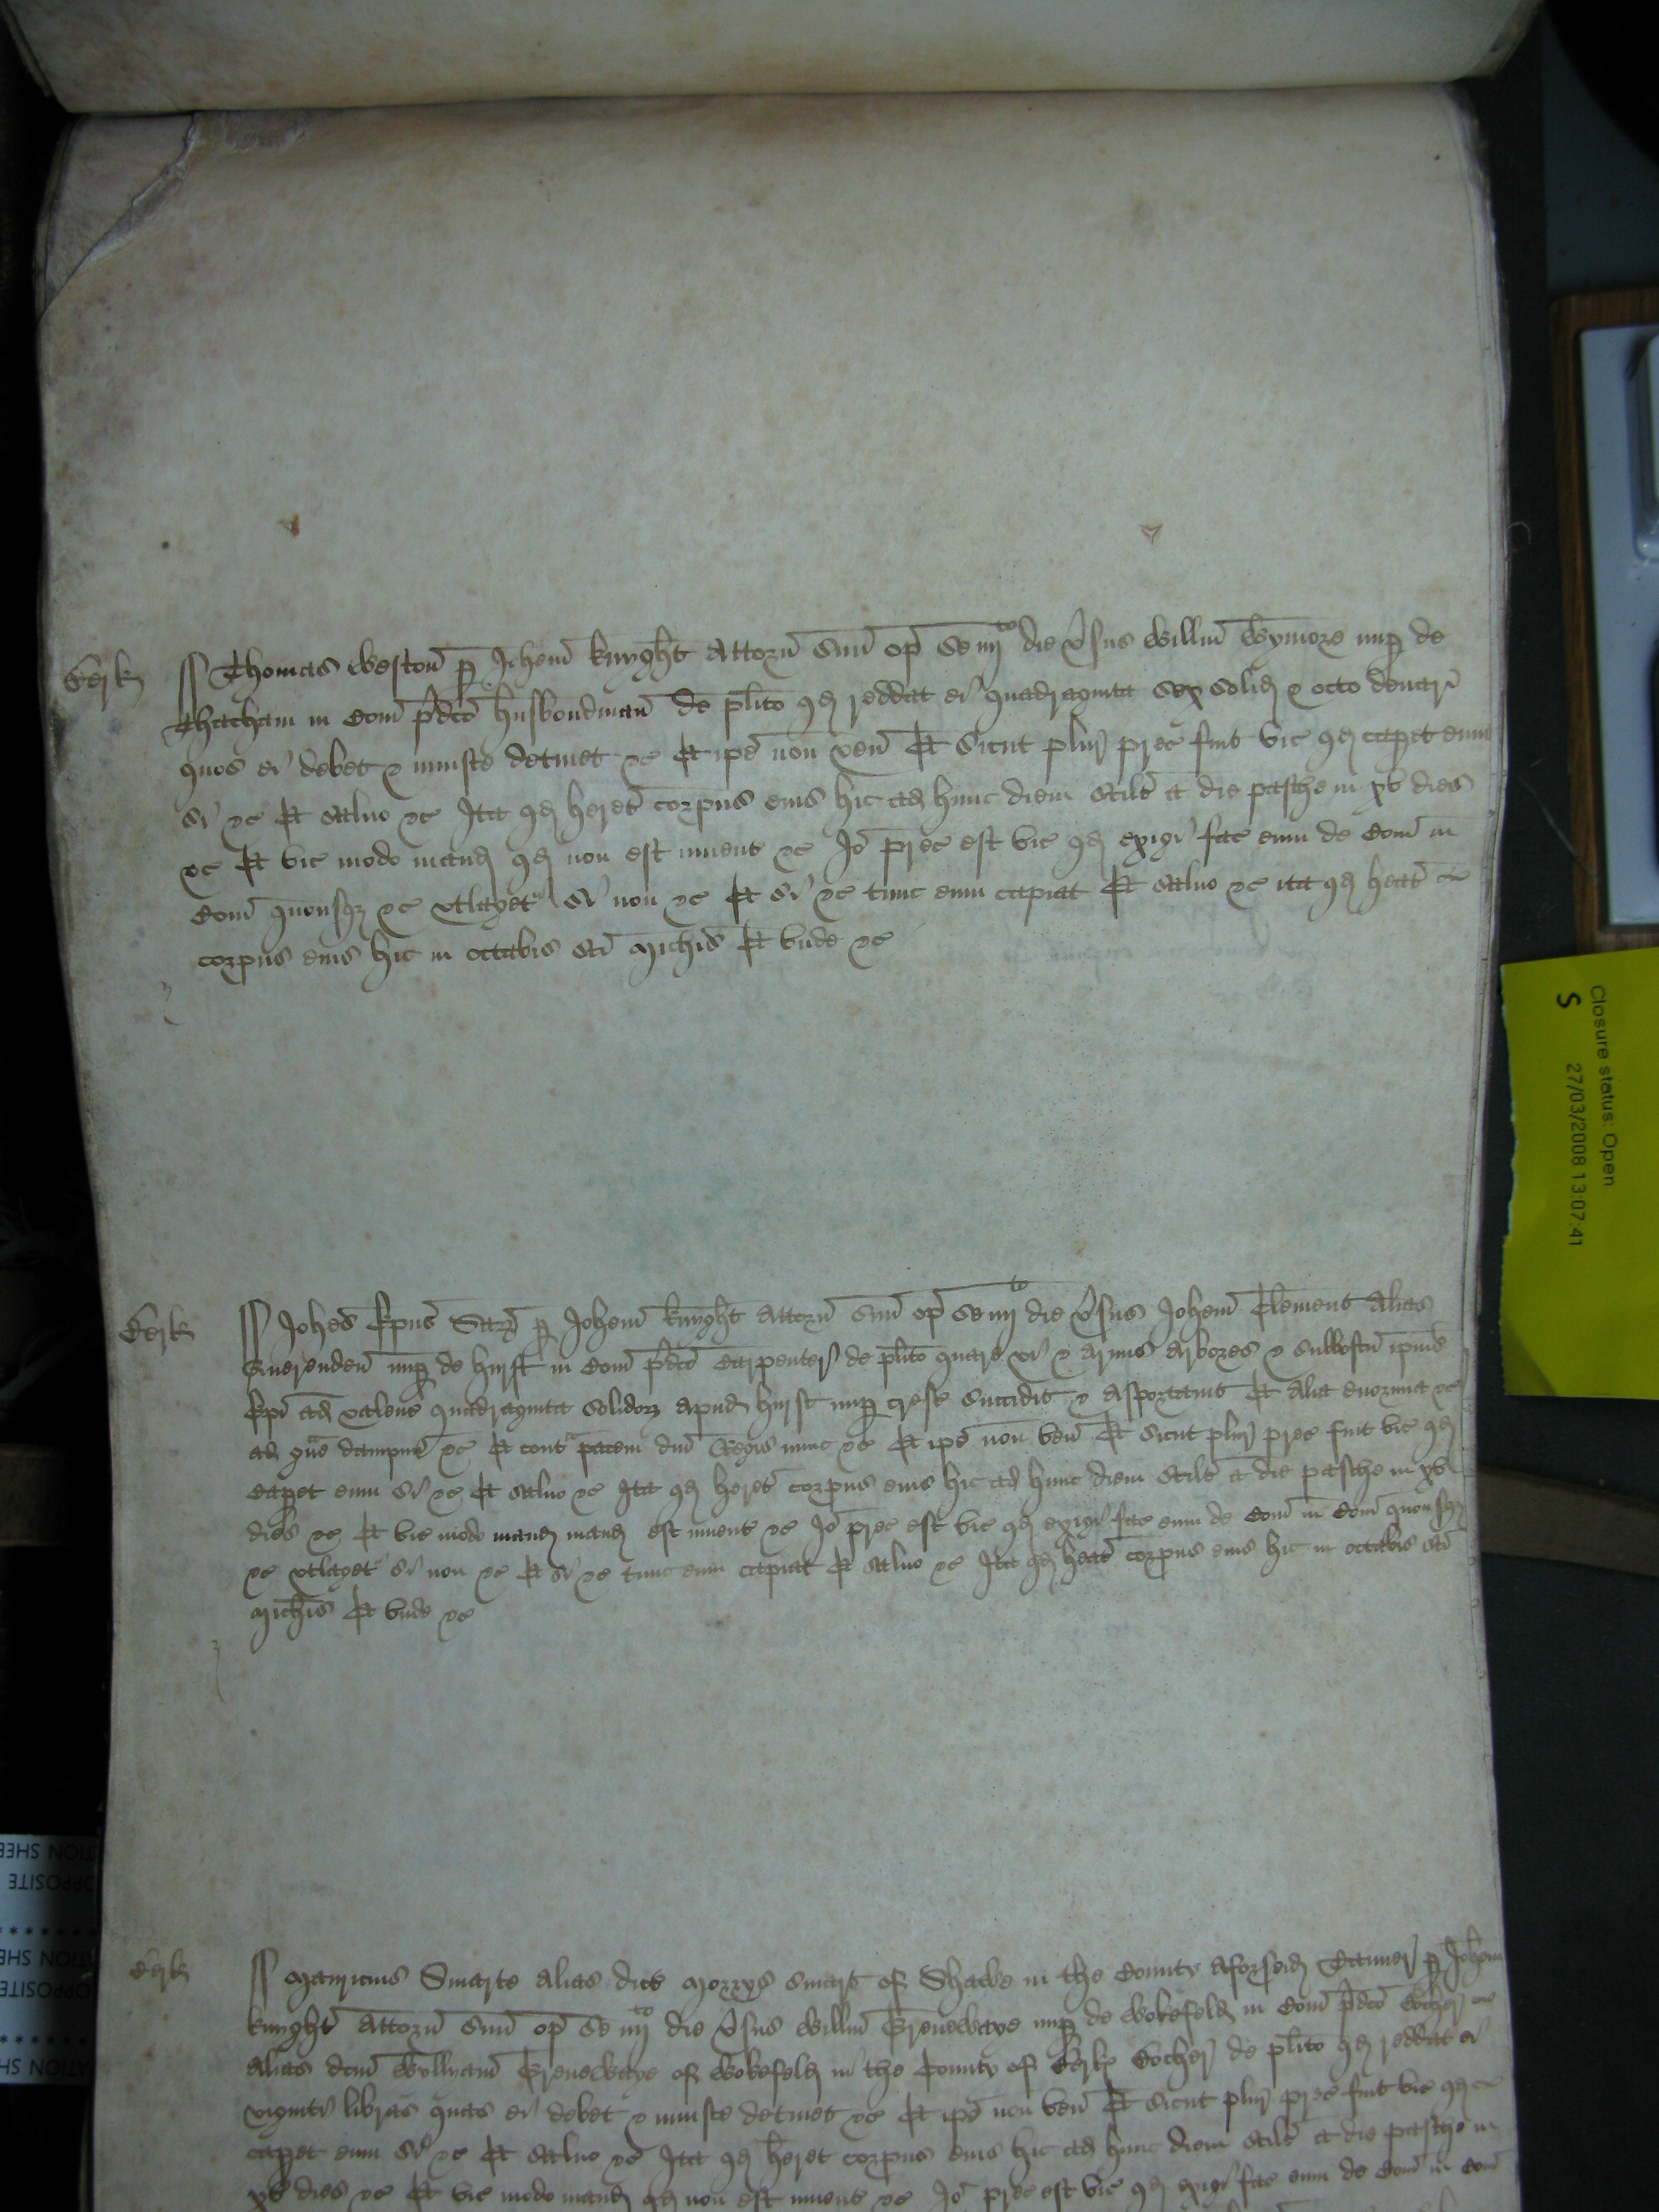 Berk
Thomas Weston p Johem Knyght attorn suu op se iiij to die vsus Willm Wymore nup de
Thacham in Com pdco husbondman de plito qd reddat ei quadraginta sex solid & octo denar
quos ei debet & iniuste detinet &c Et ipe non ven Et sicut plur prec fuit vic qd capet eum
si &c Et saluo &c Ita qd heret corpus eius hic ad hunc diem scilt a die pasche in xv dies
&c Et vic modo mand qd non est inuent &c Io prec est vic qd exigi fac eum de Com in
Com quousqz &c vtlaget si non &c Et si &c tunc eum capiat Et saluo &c ita qd heat
corpus eius hic in octabis sci Michis Et vnde &c
Berk
Johes Epus Sar p Johem Knyght attorn suu op se iiij to die vsus Johem Clement alias
Querenden nup de Hurst in Com pdco Carpenter de plito quare vi & armis arbores & subboscu ipius
Epi ad valenc quadraginta solidorz apud Hurst nup cresc succidit & asportauit Et alia enormia &c
ad graue dampnu &c Et contra pacem dni Regis nunc &c Et ipe non ven Et sicut plur prec fuit vic qd
capet eum si &c Et saluo &c Ita qd heret corpus eius hic ad hunc diem scilt a die pasche in xv
dies &c Et vic modo mand mand est inuent &c Io prec est vic qd exigi fac eum de Com in Com quousqz
&c vtlaget si non &c Et si &c tunc eum capiat Et saluo &c Ita qd heat corpus eius hic in octabis sci
Michis Et vnde &c
Berk
Mauricius Smarte alias dict Morrys Smart of Shawe in the County aforseid Tanner p Johem
Knyght attorn suu op se iiij to die vsus Willm Grenewaye nup de Wokefeld in Com pdco
alias dcm Wyllyam Grenewaye of Wokefeld in the County of Berk Bocher de plito qd reddat ei
viginti libras quas ei debet & iniuste detinet &c Et ipe non ven Et sicut plur prec fuit vic qd
capet eum si &c Et saluo &c Ita qd heret corpus eius hic ad hunc diem scilt a die pasche in
xv dies &c Et vic modo mand qd non est inuent &c Io prec est vic qd exigi fac eum de Com in Com
Closure status: Open
27/03/2008 13:07:41
S
OPPOSITE